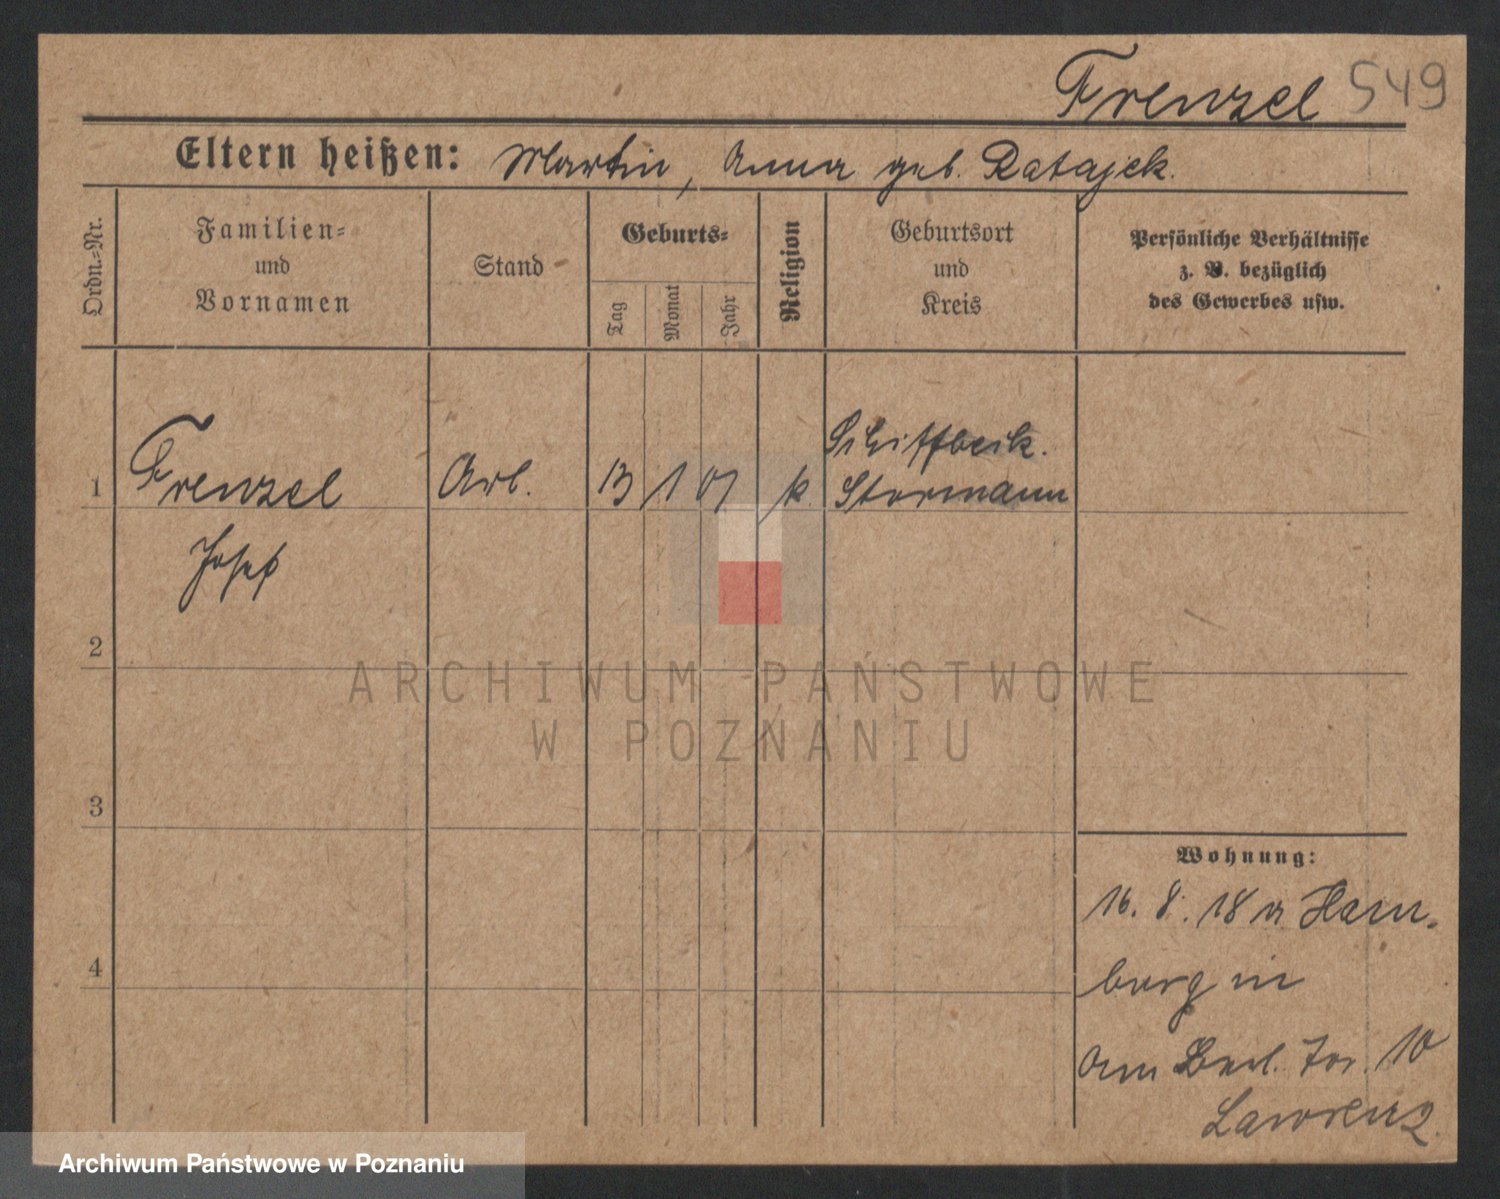 Frenzel 549
Eltern heißen: Martin, Anna geb. Ratajek.
Ordn.-Nr.
Familien-
und
Vornamen
Stand
Geburts-
Tag
Monat
Jahr
Religion
Geburtsort
und
Kreis
Persönliche Verhältnisse
z. B. bezüglich
des Gewerbes usw.
Schiffbeck.
1 Frenzel Arb. 13 1 01 k. Stormann
Josef
2
3
4
Wohnung:
16. 8. 18 a Ham-
burg in
Am Berl. Tor. 10
Lawrenz.
ARCHIWUM PAŃSTWOWE
W POZNANIU
Archiwum Państwowe w Poznaniu